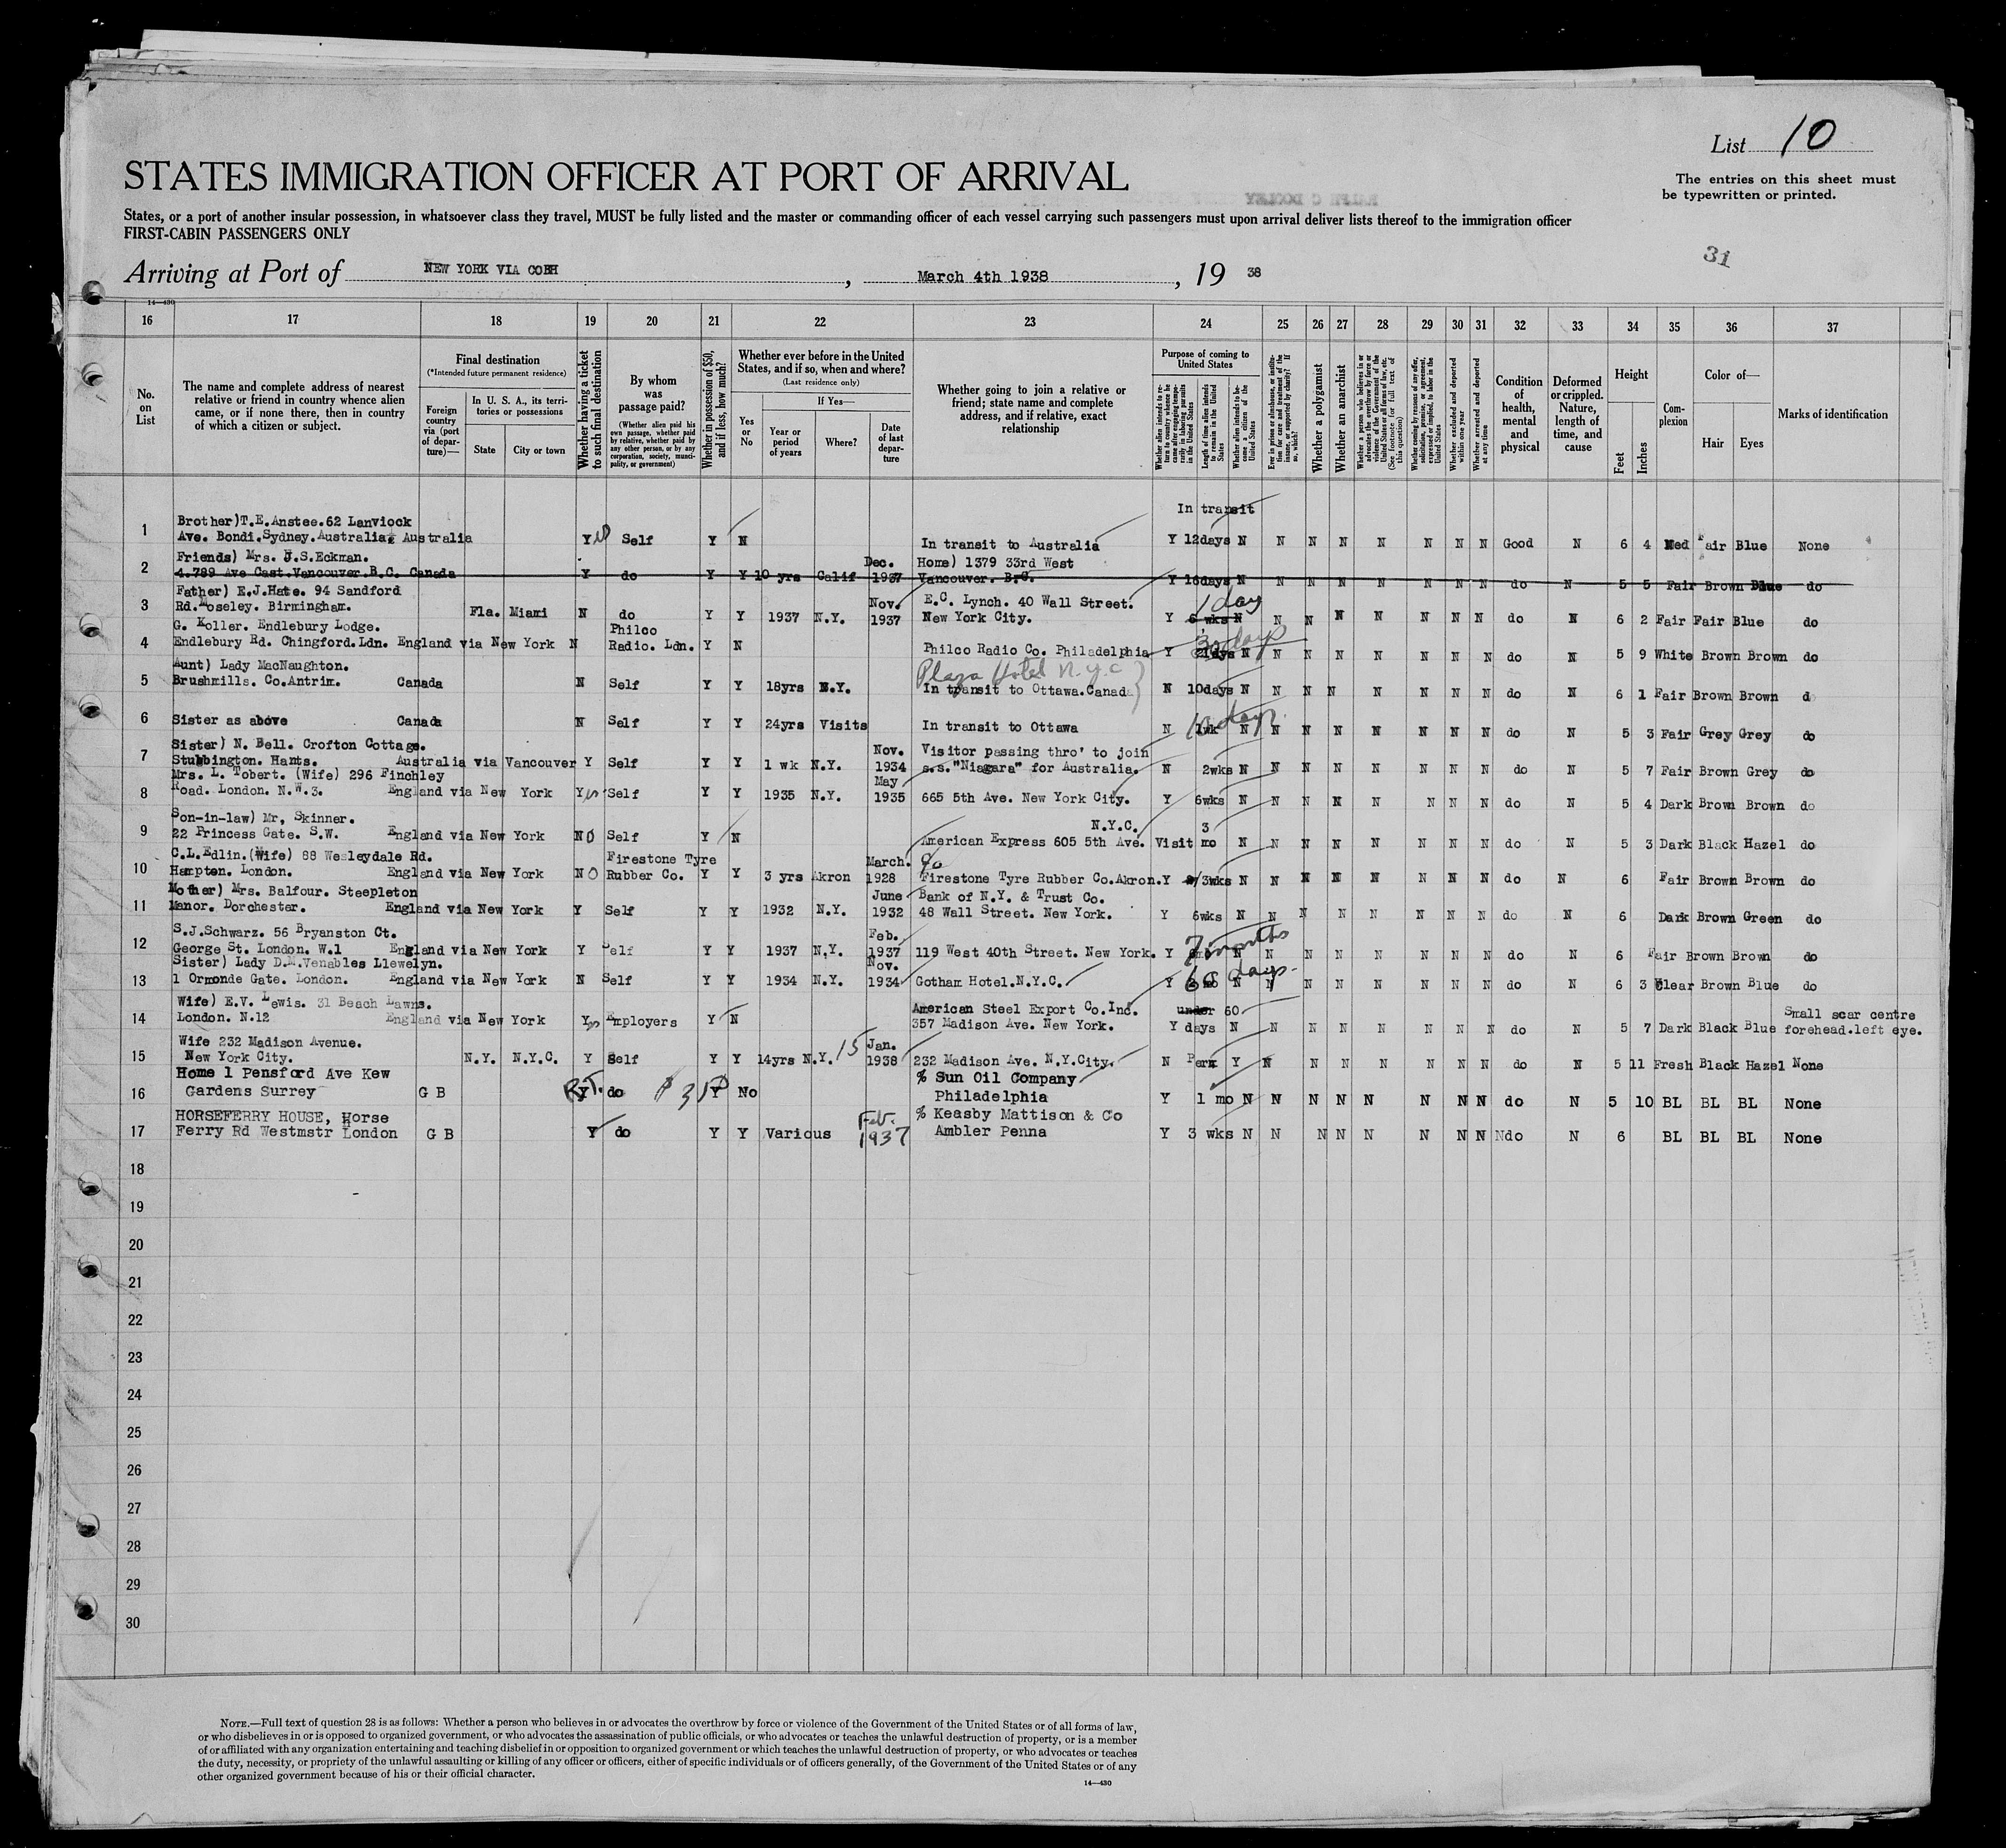 List 10
STATES IMMIGRATION OFFICER AT PORT OF ARRIVAL
The entries on this sheet must
be typewritten or printed.
States, or a port of another insular possession, in whatsoever class they travel, MUST be fully listed and the master or commanding officer of each vessel carrying such passengers must upon arrival deliver lists thereof to the immigration officer
FIRST-CABIN PASSENGERS ONLY
31
Arriving at Port of NEW YORK VIA COBH, March 4th 1938, 19 38
14—430
16 17 18 19 20 21 22 23 24 25 26 27 28 29 30 31 32 33 34 35 36 37
No. on List
The name and complete address of nearest relative or friend in country whence alien came, or if none there, then in country of which a citizen or subject.
Final destination
(*Intended future permanent residence)
Foreign country via (port of departure)—
In U. S. A., its territories or possessions
State
City or town
Whether having a ticket to such final destination
By whom was passage paid?
(Whether alien paid his own passage, whether paid by relative, whether paid by any other person, or by any corporation, society, municipality, or government)
Whether in possession of $50, and if less, how much?
Whether ever before in the United States, and if so, when and where?
(Last residence only)
Yes or No
If Yes—
Year or period of years
Where?
Date of last departure
Whether going to join a relative or friend; state name and complete address, and if relative, exact relationship
Purpose of coming to United States
Whether alien intends to return to country whence he came after engaging temporarily in laboring pursuits in the United States
Length of time alien intends to remain in the United States
Whether alien intends to become a citizen of the United States
Ever in prison or almshouse, or institution for care and treatment of the insane, or supported by charity? If so, which?
Whether a polygamist
Whether an anarchist
Whether a person who believes in or advocates the overthrow by force or violence of the Government of the United States or all forms of law, etc. (See footnote for full text of this question)
Whether coming by reasons of any offer, solicitation, promise, or agreement, expressed or implied, to labor in the United States
Whether excluded and deported within one year
Whether arrested and deported at any time
Condition of health, mental and physical
Deformed or crippled. Nature, length of time, and cause
Height
Feet
Inches
Complexion
Color of—
Hair
Eyes
Marks of identification
In transit
Brother)T.E.Anstee.62 Lanviock
1 Ave. Bondi.Sydney.Australia. Australia Y Self Y N In transit to Australia Y 12days N N N N N N N N Good N 6 4 Med Fair Blue None
Friends) Mrs. J.S.Eckman. Dec. Home) 1379 33rd West
2 4.789 Ave East.Vancouver.B.C. Canada Y do Y Y 10 yrs Calif 1937 Vancouver. B.C. Y 16days N N N N N N N N do N 5 5 Fair Brown Blue do
Father) E.J.Hate. 94 Sandford Nov. E.C. Lynch. 40 Wall Street. 1 day
3 Rd.Moseley. Birmingham. Fla. Miami N do Y Y 1937 N.Y. 1937 New York City. Y 6 wks N N N N N N N N do N 6 2 Fair Fair Blue do
G. Koller. Endlebury Lodge. Philco 30 days
4 Endlebury Rd. Chingford.Ldn. England via New York N Radio. Ldn. Y N Philco Radio Co. Philadelphia Y 21dys N N N N N N N N do N 5 9 White Brown Brown do
Aunt) Lady MacNaughton. Plaza Hotel N.Y.C
5 Brushmills. Co.Antrim. Canada N Self Y Y 18yrs N.Y. In transit to Ottawa.Canada N 10days N N N N N N N N do N 6 1 Fair Brown Brown d
10 days
6 Sister as above Canada N Self Y Y 24yrs Visits In transit to Ottawa N 1wk N N N N N N N N do N 5 3 Fair Grey Grey do
Sister) N. Bell. Crofton Cottage. Nov. Visitor passing thro' to join
7 Stubbington. Hants. Australia via Vancouver Y Self Y Y 1 wk N.Y. 1934 s.s."Niagara" for Australia. N 2wks N N N N N N N N do N 5 7 Fair Brown Grey do
Mrs. L. Tobert. (Wife) 296 Finchley May
8 Road. London. N.W.3. England via New York Y Self Y Y 1935 N.Y. 1935 665 5th Ave. New York City. Y 6wks N N N N N N N N do N 5 4 Dark Brown Brown do
Son-in-law) Mr, Skinner. N.Y.C. 3
9 22 Princess Gate. S.W. England via New York NO Self Y N American Express 605 5th Ave. Visit mo N N N N N N N N do N 5 3 Dark Black Hazel do
C.L.Edlin.(Wife) 88 Wesleydale Rd. Firestone Tyre March. %
10 Hampton. London. England via New York NO Rubber Co. Y Y 3 yrs Akron 1928 Firestone Tyre Rubber Co.Akron. Y 2/3wks N N N N N N N N do N 6 Fair Brown Brown do
Mother) Mrs. Balfour. Steepleton June Bank of N.Y. & Trust Co.
11 Manor. Dorchester. England via New York Y Self Y Y 1932 N.Y. 1932 48 Wall Street. New York. Y 6wks N N N N N N N N do N 6 Dark Brown Green do
S.J.Schwarz. 56 Bryanston Ct. Feb. 7 months
12 George St. London. W.1 England via New York Y Self Y Y 1937 N.Y. 1937 119 West 40th Street. New York. Y N N N N N N N N do N 6 Fair Brown Brown do
Sister) Lady D.M.Venables Llewelyn. Nov. 60 days.
13 1 Ormonde Gate. London. England via New York N Self Y Y 1934 N.Y. 1934 Gotham Hotel.N.Y.C. Y N N N N N N N N do N 6 3 Clear Brown Blue do
Wife) E.V. Lewis. 31 Beach Lawns. American Steel Export Co.Inc. under 60 Small scar centre
14 London. N.12 England via New York Y Employers Y N 357 Madison Ave. New York. Y days N N N N N N N N do N 5 7 Dark Black Blue forehead.left eye.
Wife 232 Madison Avenue. 15 Jan.
15 New York City. N.Y. N.Y.C. Y Self Y Y 14yrs N.Y. 1938 232 Madison Ave. N.Y.City. N Perm Y N N N N N N N do N 5 11 Fresh Black Hazel None
Home 1 Pensford Ave Kew % Sun Oil Company
16 Gardens Surrey G B R.T. Y do Y No Philadelphia Y 1 mo N N N N N N N N do N 5 10 BL BL BL None
HORSEFERRY HOUSE, Horse Feb. % Keasby Mattison & Co
17 Ferry Rd Westmstr London G B Y do Y Y Various 1937 Ambler Penna Y 3 wks N N N N N N N N Ndo N 6 BL BL BL None
18
19
20
21
22
23
24
25
26
27
28
29
30
NOTE.—Full text of question 28 is as follows: Whether a person who believes in or advocates the overthrow by force or violence of the Government of the United States or of all forms of law,
or who disbelieves in or is opposed to organized government, or who advocates the assassination of public officials, or who advocates or teaches the unlawful destruction of property, or is a member
of or affiliated with any organization entertaining and teaching disbelief in or opposition to organized government or which teaches the unlawful destruction of property, or who advocates or teaches
the duty, necessity, or propriety of the unlawful assaulting or killing of any officer or officers, either of specific individuals or of officers generally, of the Government of the United States or of any
other organized government because of his or their official character.
14—430